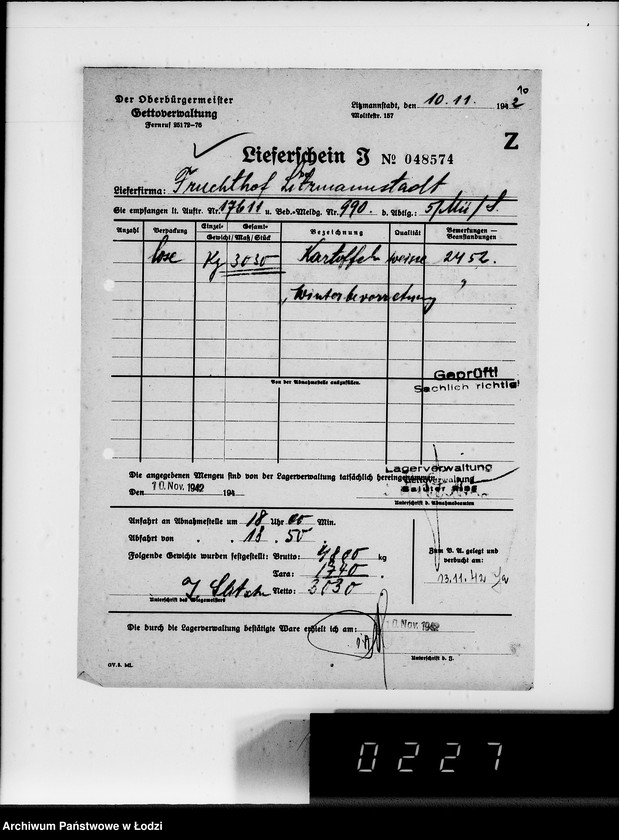 10
Der Oberbürgermeister
Gettoverwaltung
Fernruf 25172-76
Litzmannstadt, den 10.11. 1942
Moltkestr. 157
Z
Lieferschein J № 048574
Lieferfirma: Fruchthof Litzmannstadt
Sie empfangen lt. Auftr. Nr. 17611 u. Bed.-Meldg. Nr. 990. d. Abtlg.: 5/Mü/S.
Anzahl Verpackung Einzel- Gesamt- Gewicht/Maß/Stück Bezeichnung Qualität Bemerkungen — Beanstandungen
lose Kg 3030 Kartoffeln weisse 2452.
Winterbevorratung
Geprüft!
Sachlich richtig!
Von der Abnahmestelle auszufüllen.
Die angegebenen Mengen sind von der Lagerverwaltung tatsächlich hereingenommen
Lagerverwaltung
Gettoverwaltung
Baluter Ring
Den 10. Nov. 1942 194
Unterschrift d. Abnahmebeamten
Anfahrt an Abnahmestelle um 18 Uhr 00 Min.
Abfahrt von " " 18 . 50 "
Folgende Gewichte wurden festgestellt: Brutto: kg
Tara: 1740 "
Netto: 3030 "
Unterschrift des Wagemeisters
Zum B. A. gelegt und
verbucht am:
13.11.42
Die durch die Lagerverwaltung bestätigte Ware erhielt ich am: 10. Nov. 1942
Unterschrift d. J.
GV. 8. 141.
0227
Archiwum Państwowe w Łodzi